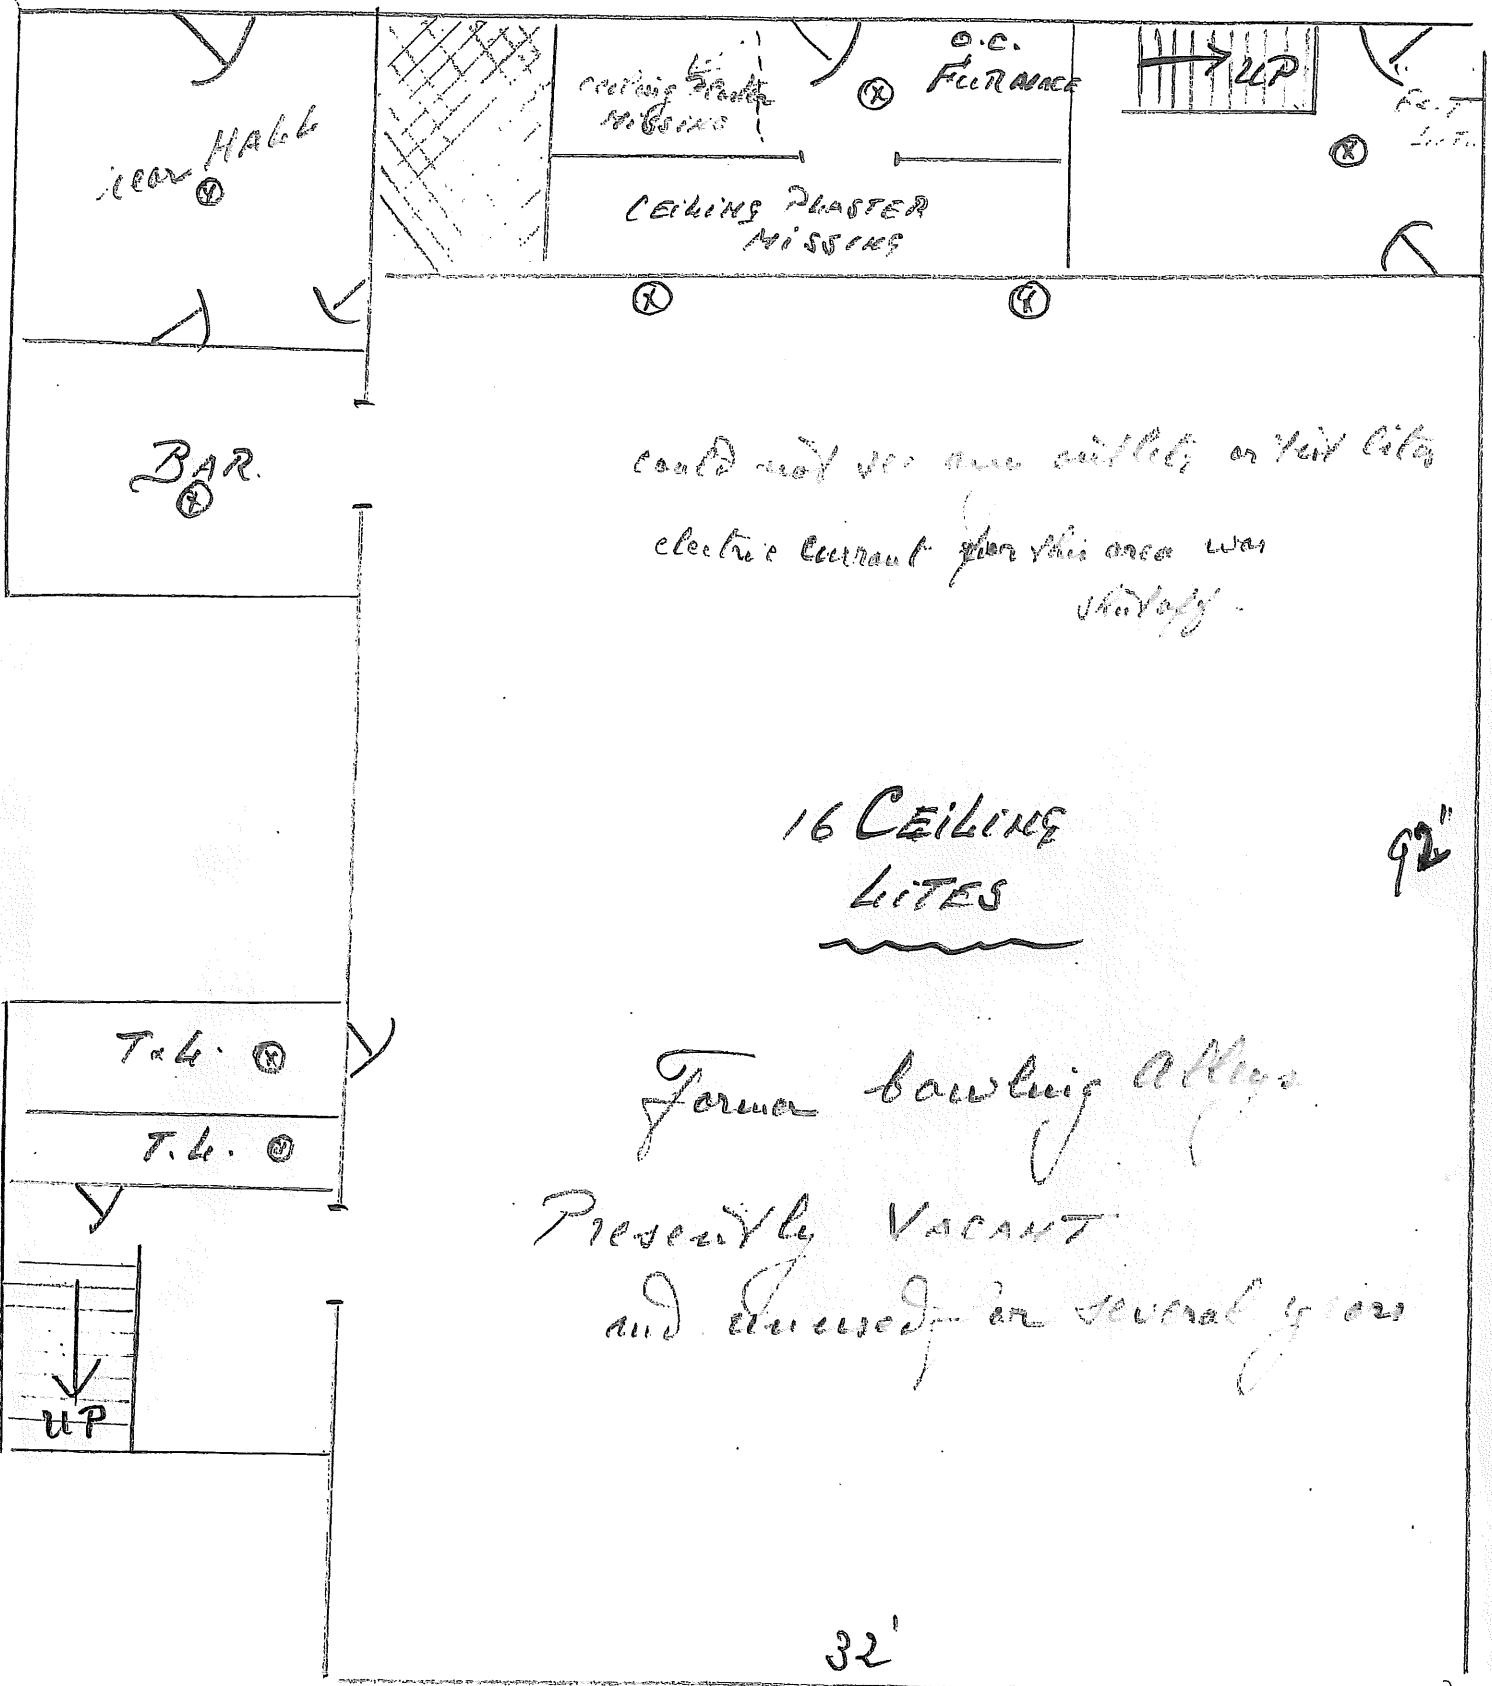 O.C.
FURANACE
UP
rear HALL
Ceiling Plaster
MISSING
CEILING PLASTER
MISSING
BAR.
could not see any outlets or test lites
electric current for this area was
shut off.
16 CEILING
LITES
92'
T.L.
T.L.
Former bowling Alleys
Presently VACANT
and unused for several years
UP
32'